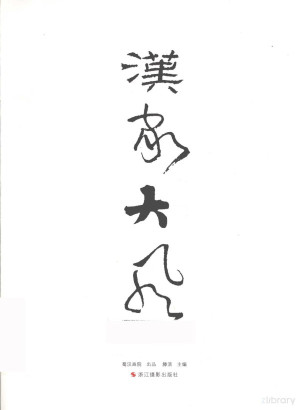 漢
家
大
风
出品 主编
浙江摄影出版社